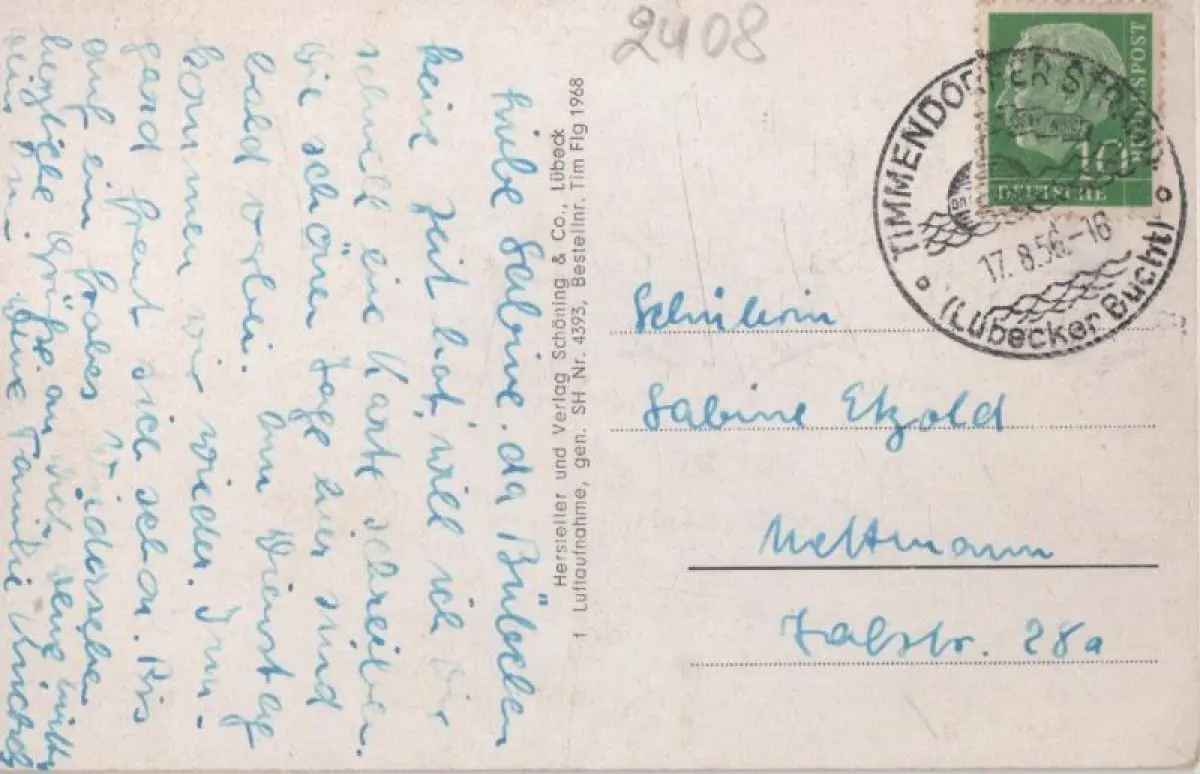 2408
Liebe Sabine. da Bübchen
keine Zeit hat, will ich Dir
schnell eine Karte schreiben.
Die schönen Tage hier sind
bald vorbei. Am Dienstag
kommen wir wieder. Irm-
gard freut sich schon. Bis
auf ein frohes Wiedersehen
herzliche Grüße an dich, deine Mutti
Familie
Hersteller und Verlag Schöning & Co., Lübeck
† Luftaufnahme, gen. SH Nr. 4393, Bestellnr. Tim Flg 1968
DEUTSCHE
BUNDESPOST
10
TIMMENDORFER STRAND
17.8.56.-16
(Lübecker Bucht)
Schülerin
Sabine Etzold
Mettmann
Talstr. 28a